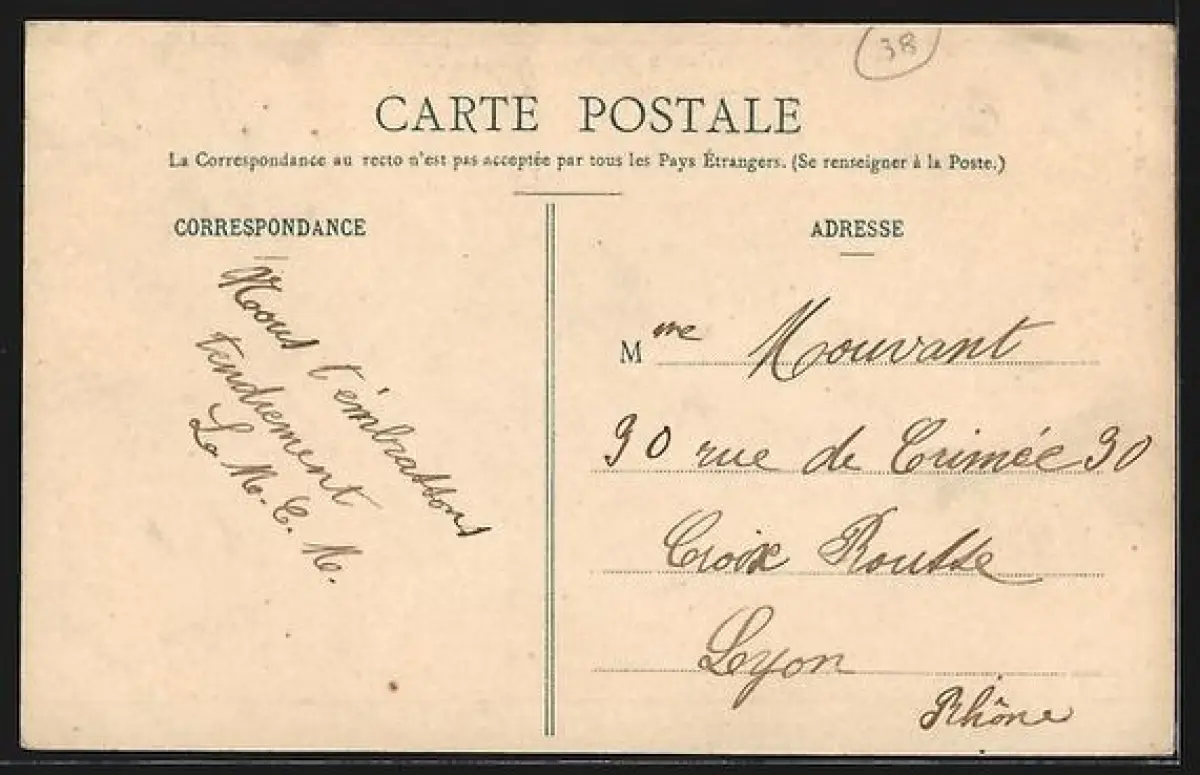 38
CARTE POSTALE
La Correspondance au recto n'est pas acceptée par tous les Pays Étrangers. (Se renseigner à la Poste.)
CORRESPONDANCE
ADRESSE
Nous t'embrassons
tendrement
L. M. C. M.
Mme Mouvant
90 rue de Crimée 90
Croix Rousse
Lyon
Rhône